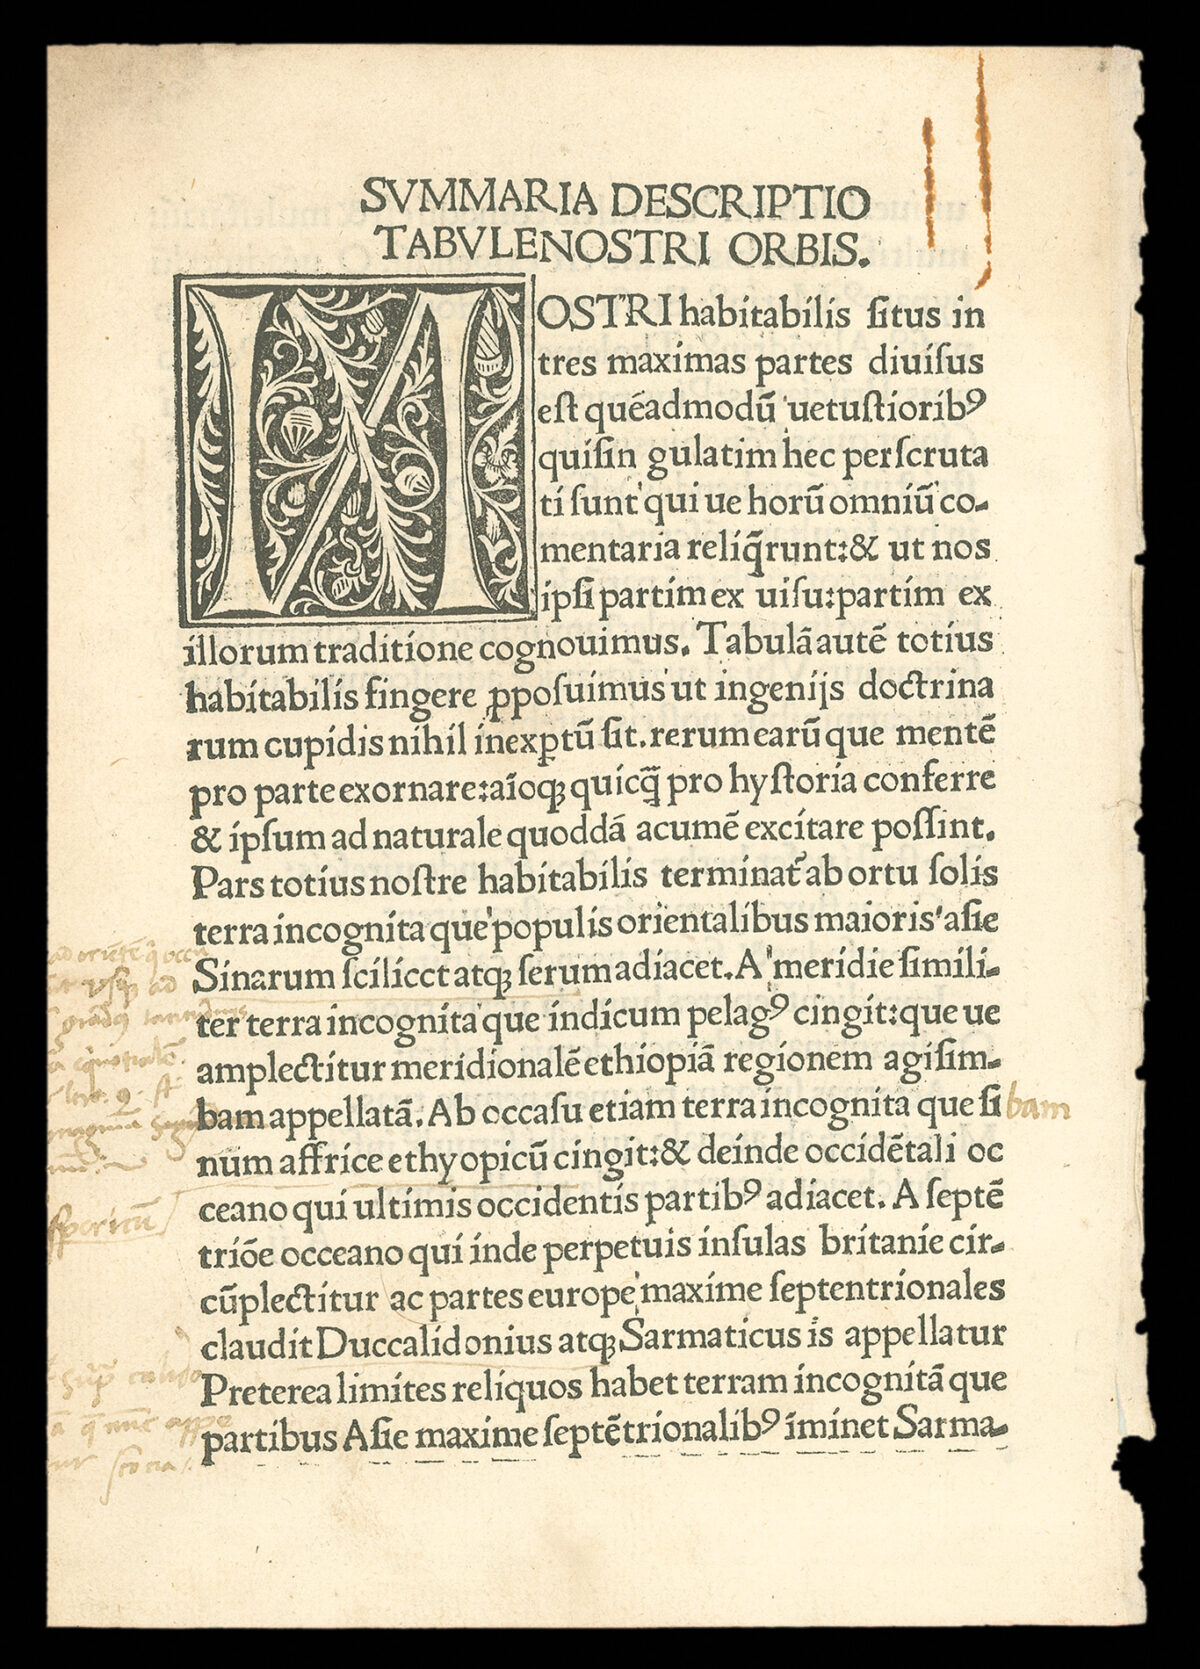 SVMMARIA DESCRIPTIO
TABVLE NOSTRI ORBIS.
NOSTRI habitabilis ſitus in
tres maximas partes diuiſus
eſt quēadmodū uetuſtioribꝰ
quiſin gulatim hec perſcruta
ti ſunt qui ue horū omniū co-
mentaria reliq̄runt:& ut nos
ipſi partim ex uiſu:partim ex
illorum traditione cognouimus. Tabulā autē totius
habitabilis fingere ꝓpoſuimus ut ingenijs doctrina
rum cupidis nihil inexꝑtū ſit. rerum earū que mentē
pro parte exornare:aīoqꝫ quicq̄ pro hyſtoria conferre
& ipſum ad naturale quoddā acumē excitare poſſint.
Pars totius noſtre habitabilis terminat᷑ ab ortu ſolis
terra incognita que populis orientalibus maioris aſie
Sinarum ſcilicct atqꝫ ſerum adiacet. A meridie ſimili-
ter terra incognita que indicum pelagꝰ cingit:que ue
amplectitur meridionalē ethiopiā regionem agiſim-
bam appellatā. Ab occaſu etiam terra incognita que ſi bam
num affrice ethyopicū cingit:& deinde occidētali oc
ceano qui ultimis occidentis partibꝰ adiacet. A ſeptē
triōe occeano qui inde perpetuis inſulas britanie cir-
cūplectitur ac partes europe maxime ſeptentrionales
claudit Duccalidonius atqꝫ Sarmaticus is appellatur
Preterea limites reliquos habet terram incognitā que
partibus Aſie maxime ſeptētrionalibꝰ īminet Sarma-
ſcocia